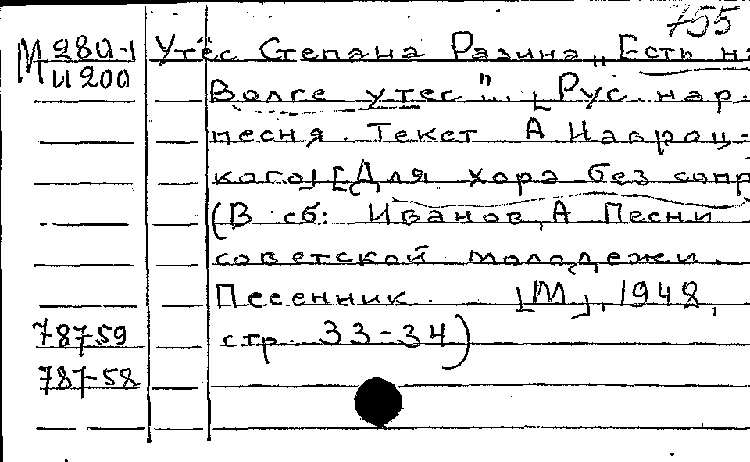 755
М 280-1 Утёс Степана Разина „Есть на
И 200 Волге утес". [Рус. нар.
песня. Текст А Навроц-
кого] [Для хора без сопр
(В сб: Иванов, А Песни
советской молодежи.
Песенник. [М], 1948,
787-59 стр. 33-34)
787-58